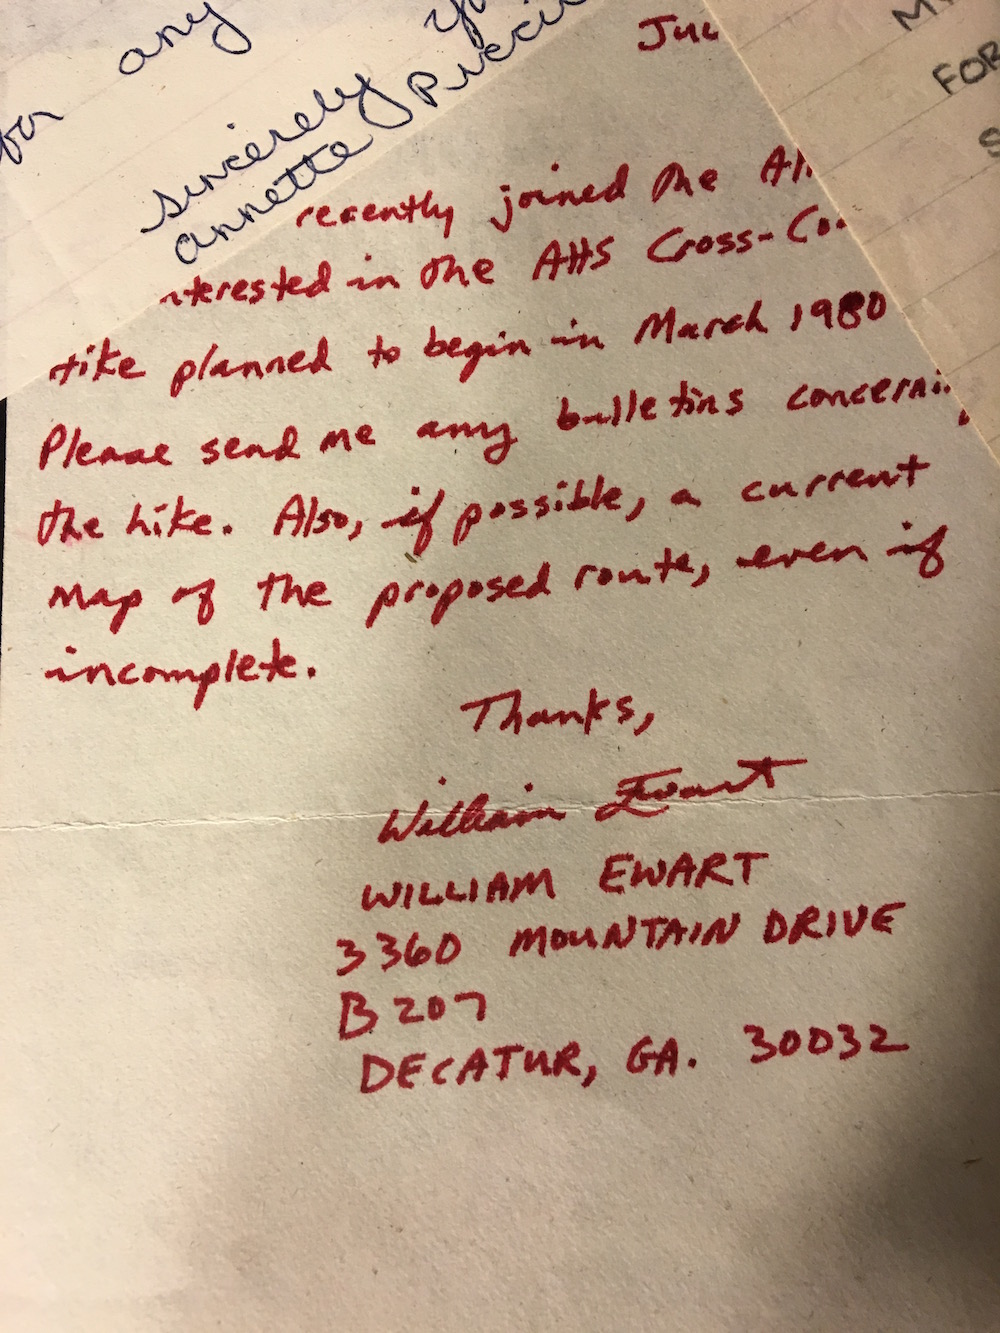 for any
sincerely
annette
MY
FOR
S
Jul
recently joined the AH
nterested in the AHS Cross-Co
Hike planned to begin in March 1980
Please send me any bulletins concerni
the hike. Also, if possible, a current
map of the proposed route, even if
incomplete.
Thanks,
William Ewart
WILLIAM EWART
3360 MOUNTAIN DRIVE
B207
DECATUR, GA. 30032